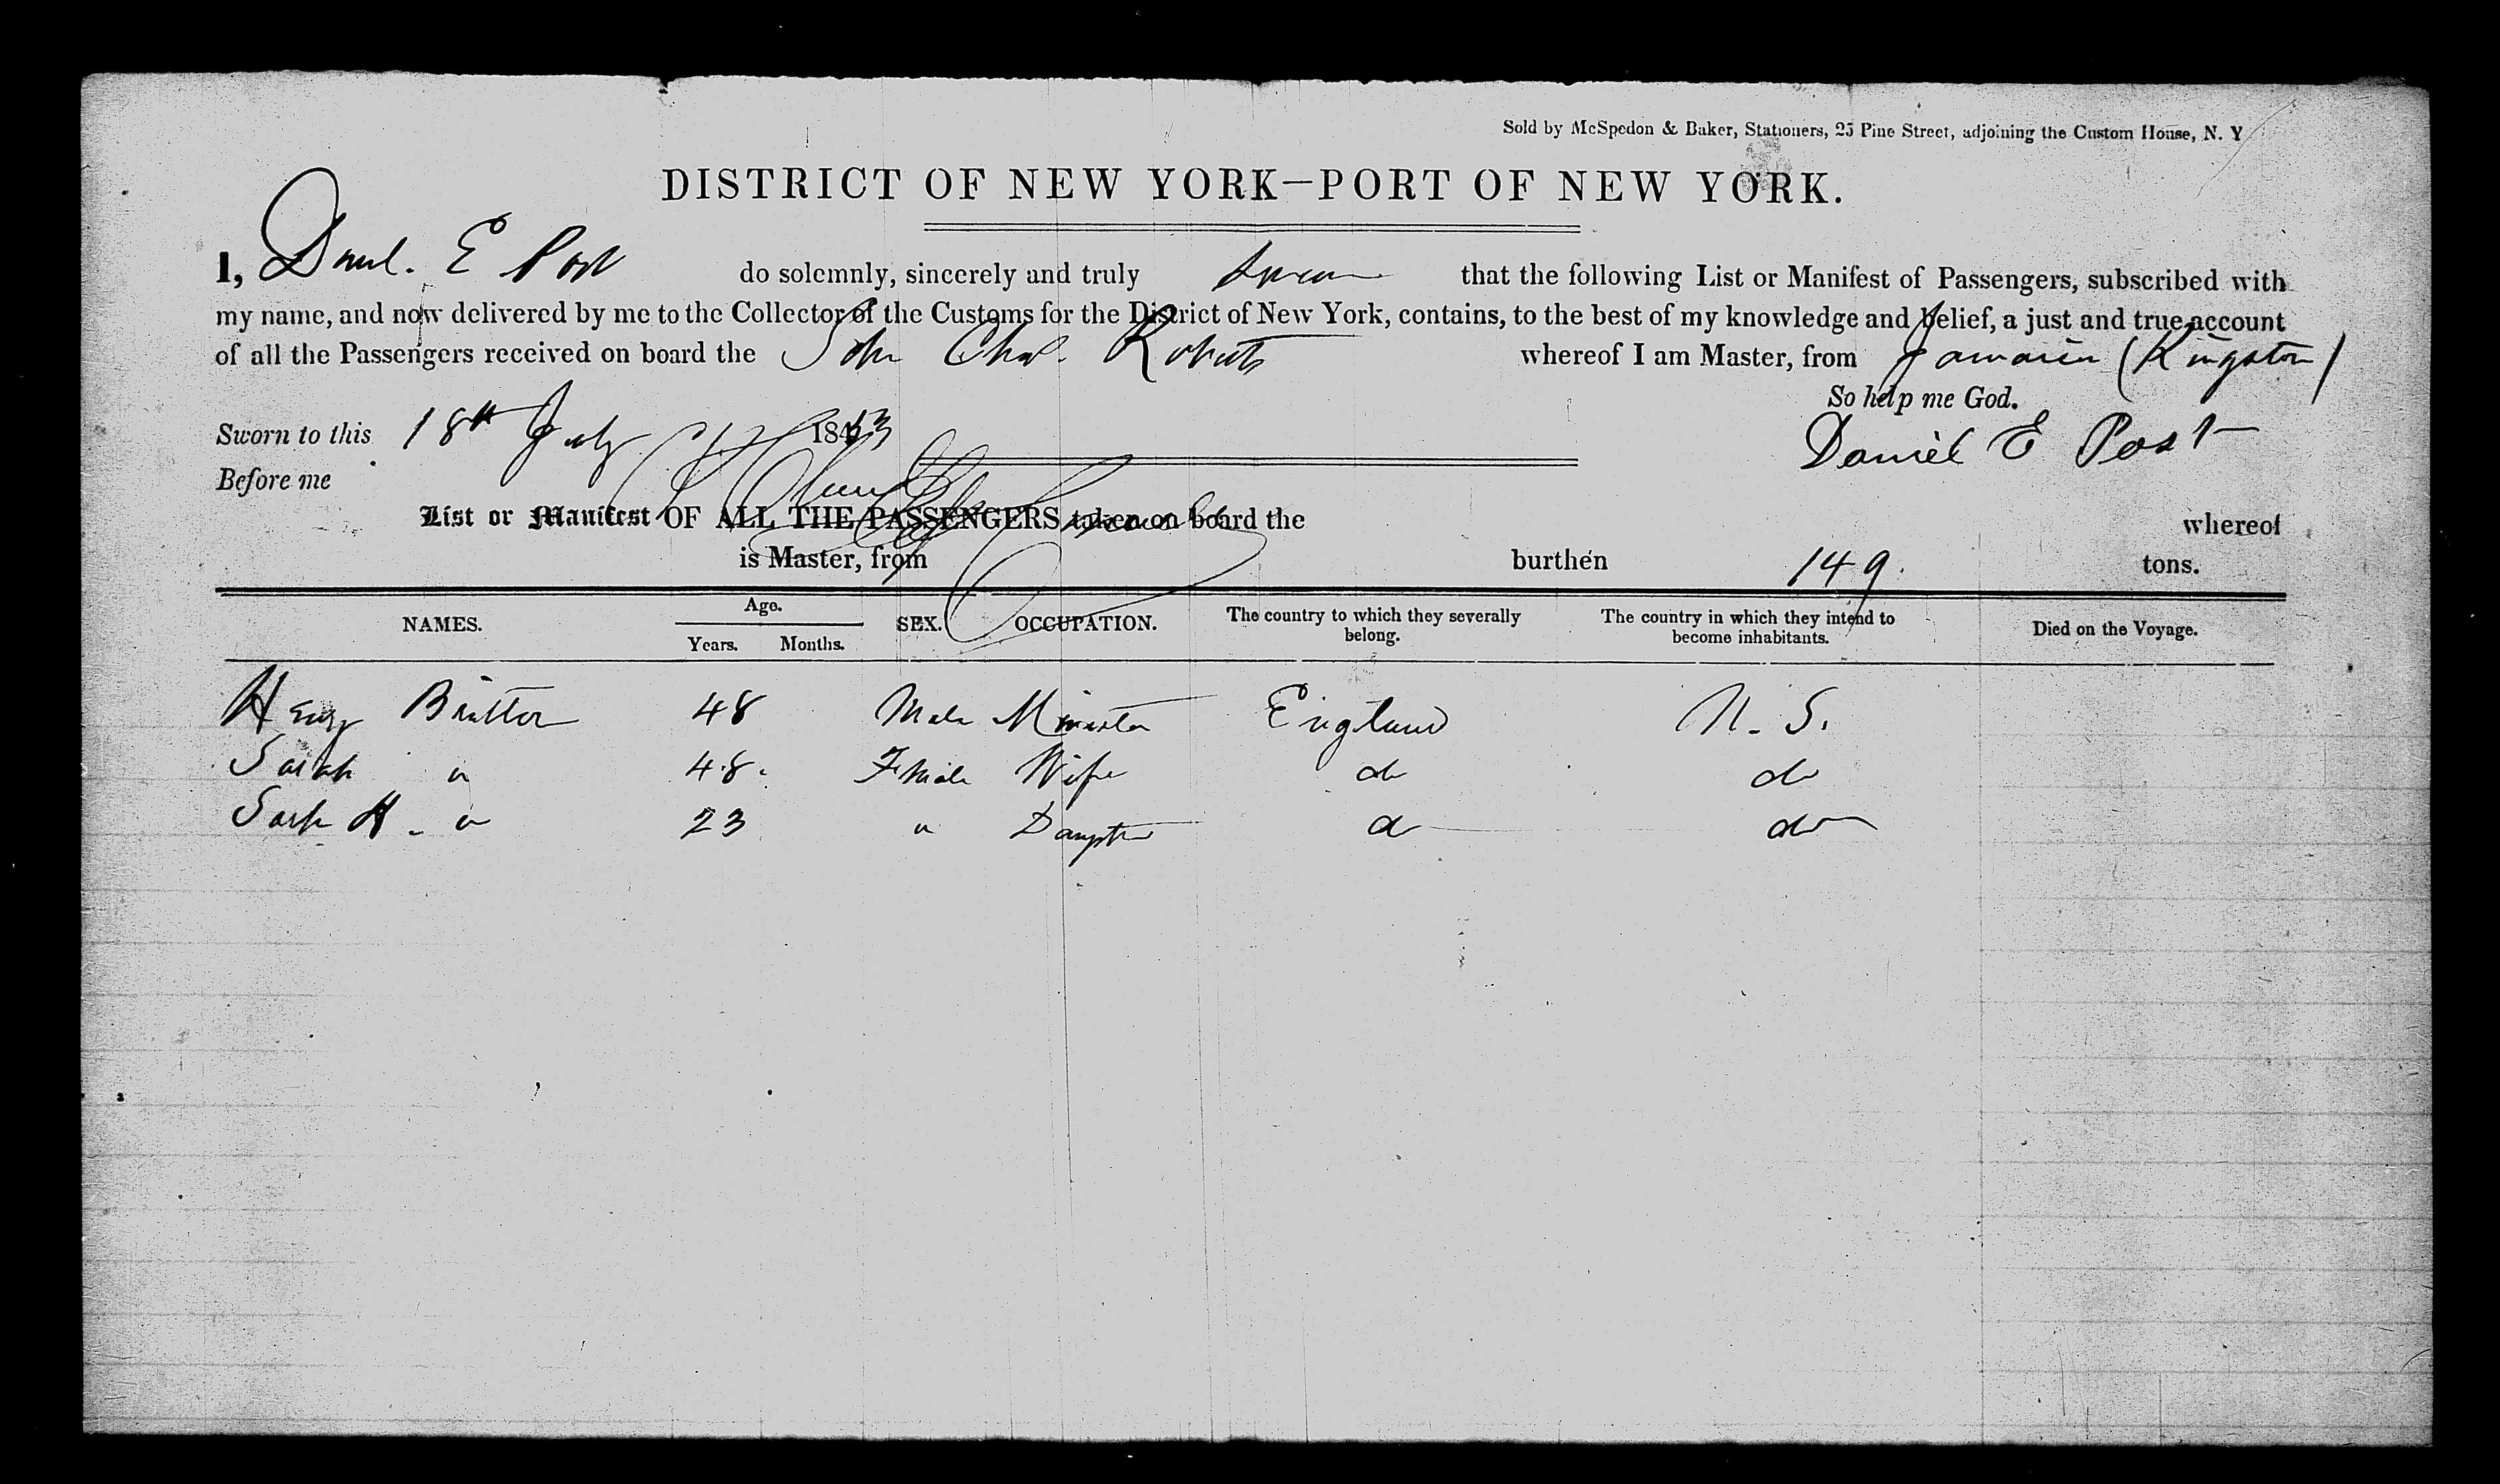 Sold by McSpedon & Baker, Stationers, 25 Pine Street, adjoining the Custom House, N. Y
DISTRICT OF NEW YORK—PORT OF NEW YORK.
I, Danl. E Post do solemnly, sincerely and truly swear that the following List or Manifest of Passengers, subscribed with
my name, and now delivered by me to the Collector of the Customs for the District of New York, contains, to the best of my knowledge and belief, a just and true account
of all the Passengers received on board the Schr Chas. Roberts whereof I am Master, from Jamaica (Kingston)
So help me God.
Sworn to this 18th July 1853
Daniel E Post
Before me
List or Manifest OF ALL THE PASSENGERS taken on board the whereof
is Master, from burthen 149 tons.
NAMES. Age. Years. Months. SEX. OCCUPATION. The country to which they severally belong. The country in which they intend to become inhabitants. Died on the Voyage.
Henry Britton 48 Male Minister England U. S.
Sarah " 48. Female Wife do do
Sarh H. " 23 " Daughter do do